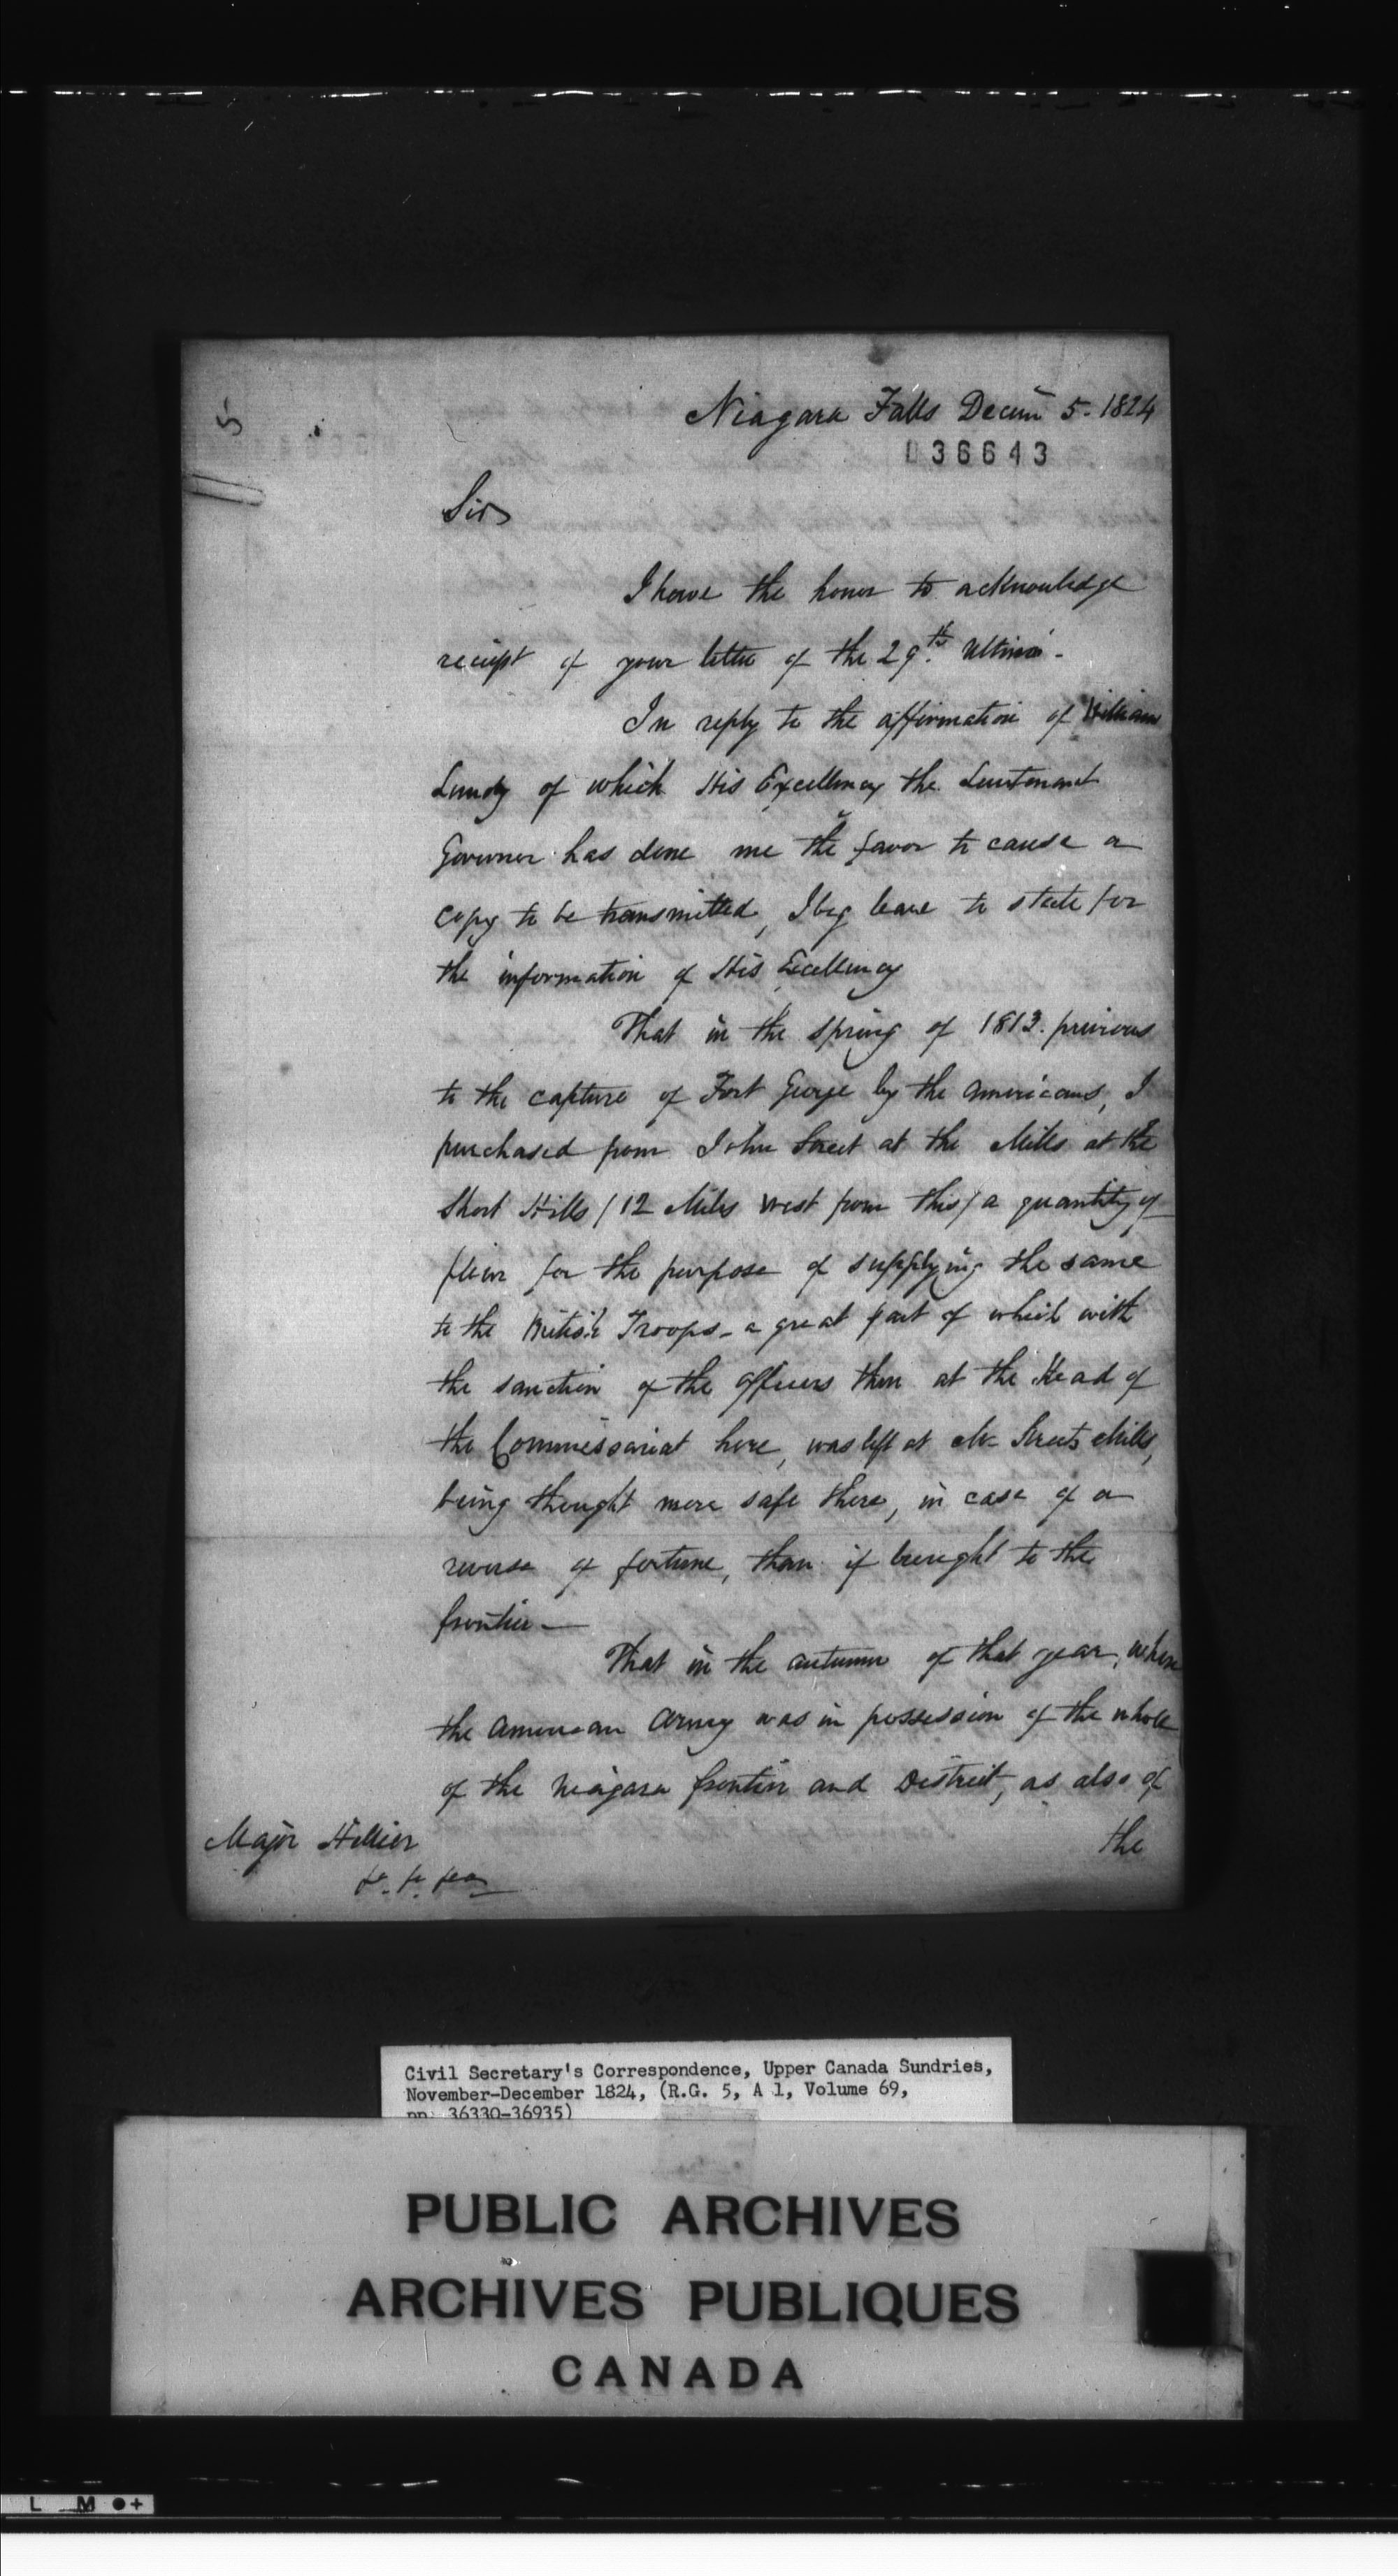 5
Niagara Falls Decem 5. 1824
36643
Sir
I have the honor to acknowledge
receipt of your letter of the 29th. Ultimo.
In reply to the affirmation of William
Lundy of which His Excellency the Lieutenant
Governor has done me the favor to cause a
copy to be transmitted, I beg leave to state for
the information of His Excellency
That in the spring of 1813. previous
to the capture of Fort George by the Americans, I
purchased from John Street at the Mills at the
Short Hills / 12 Miles West from this / a quantity of
flour for the purpose of supplying the same
to the British Troops - a great part of which with
the sanction of the Officers then at the Head of
the Commissariat here, was left at Mr Streets Mills,
being thought more safe there, in case of a
reverse of fortune, than if brought to the
frontier —
That in the autumn of that year, when
the American Army was in possession of the whole
of the Niagara frontier and District, as also of
the
Major Hillier
Civil Secretary's Correspondence, Upper Canada Sundries,
November-December 1824, (R.G. 5, A 1, Volume 69,
pp. 36330-36935)
PUBLIC ARCHIVES
ARCHIVES PUBLIQUES
CANADA
L M ●+